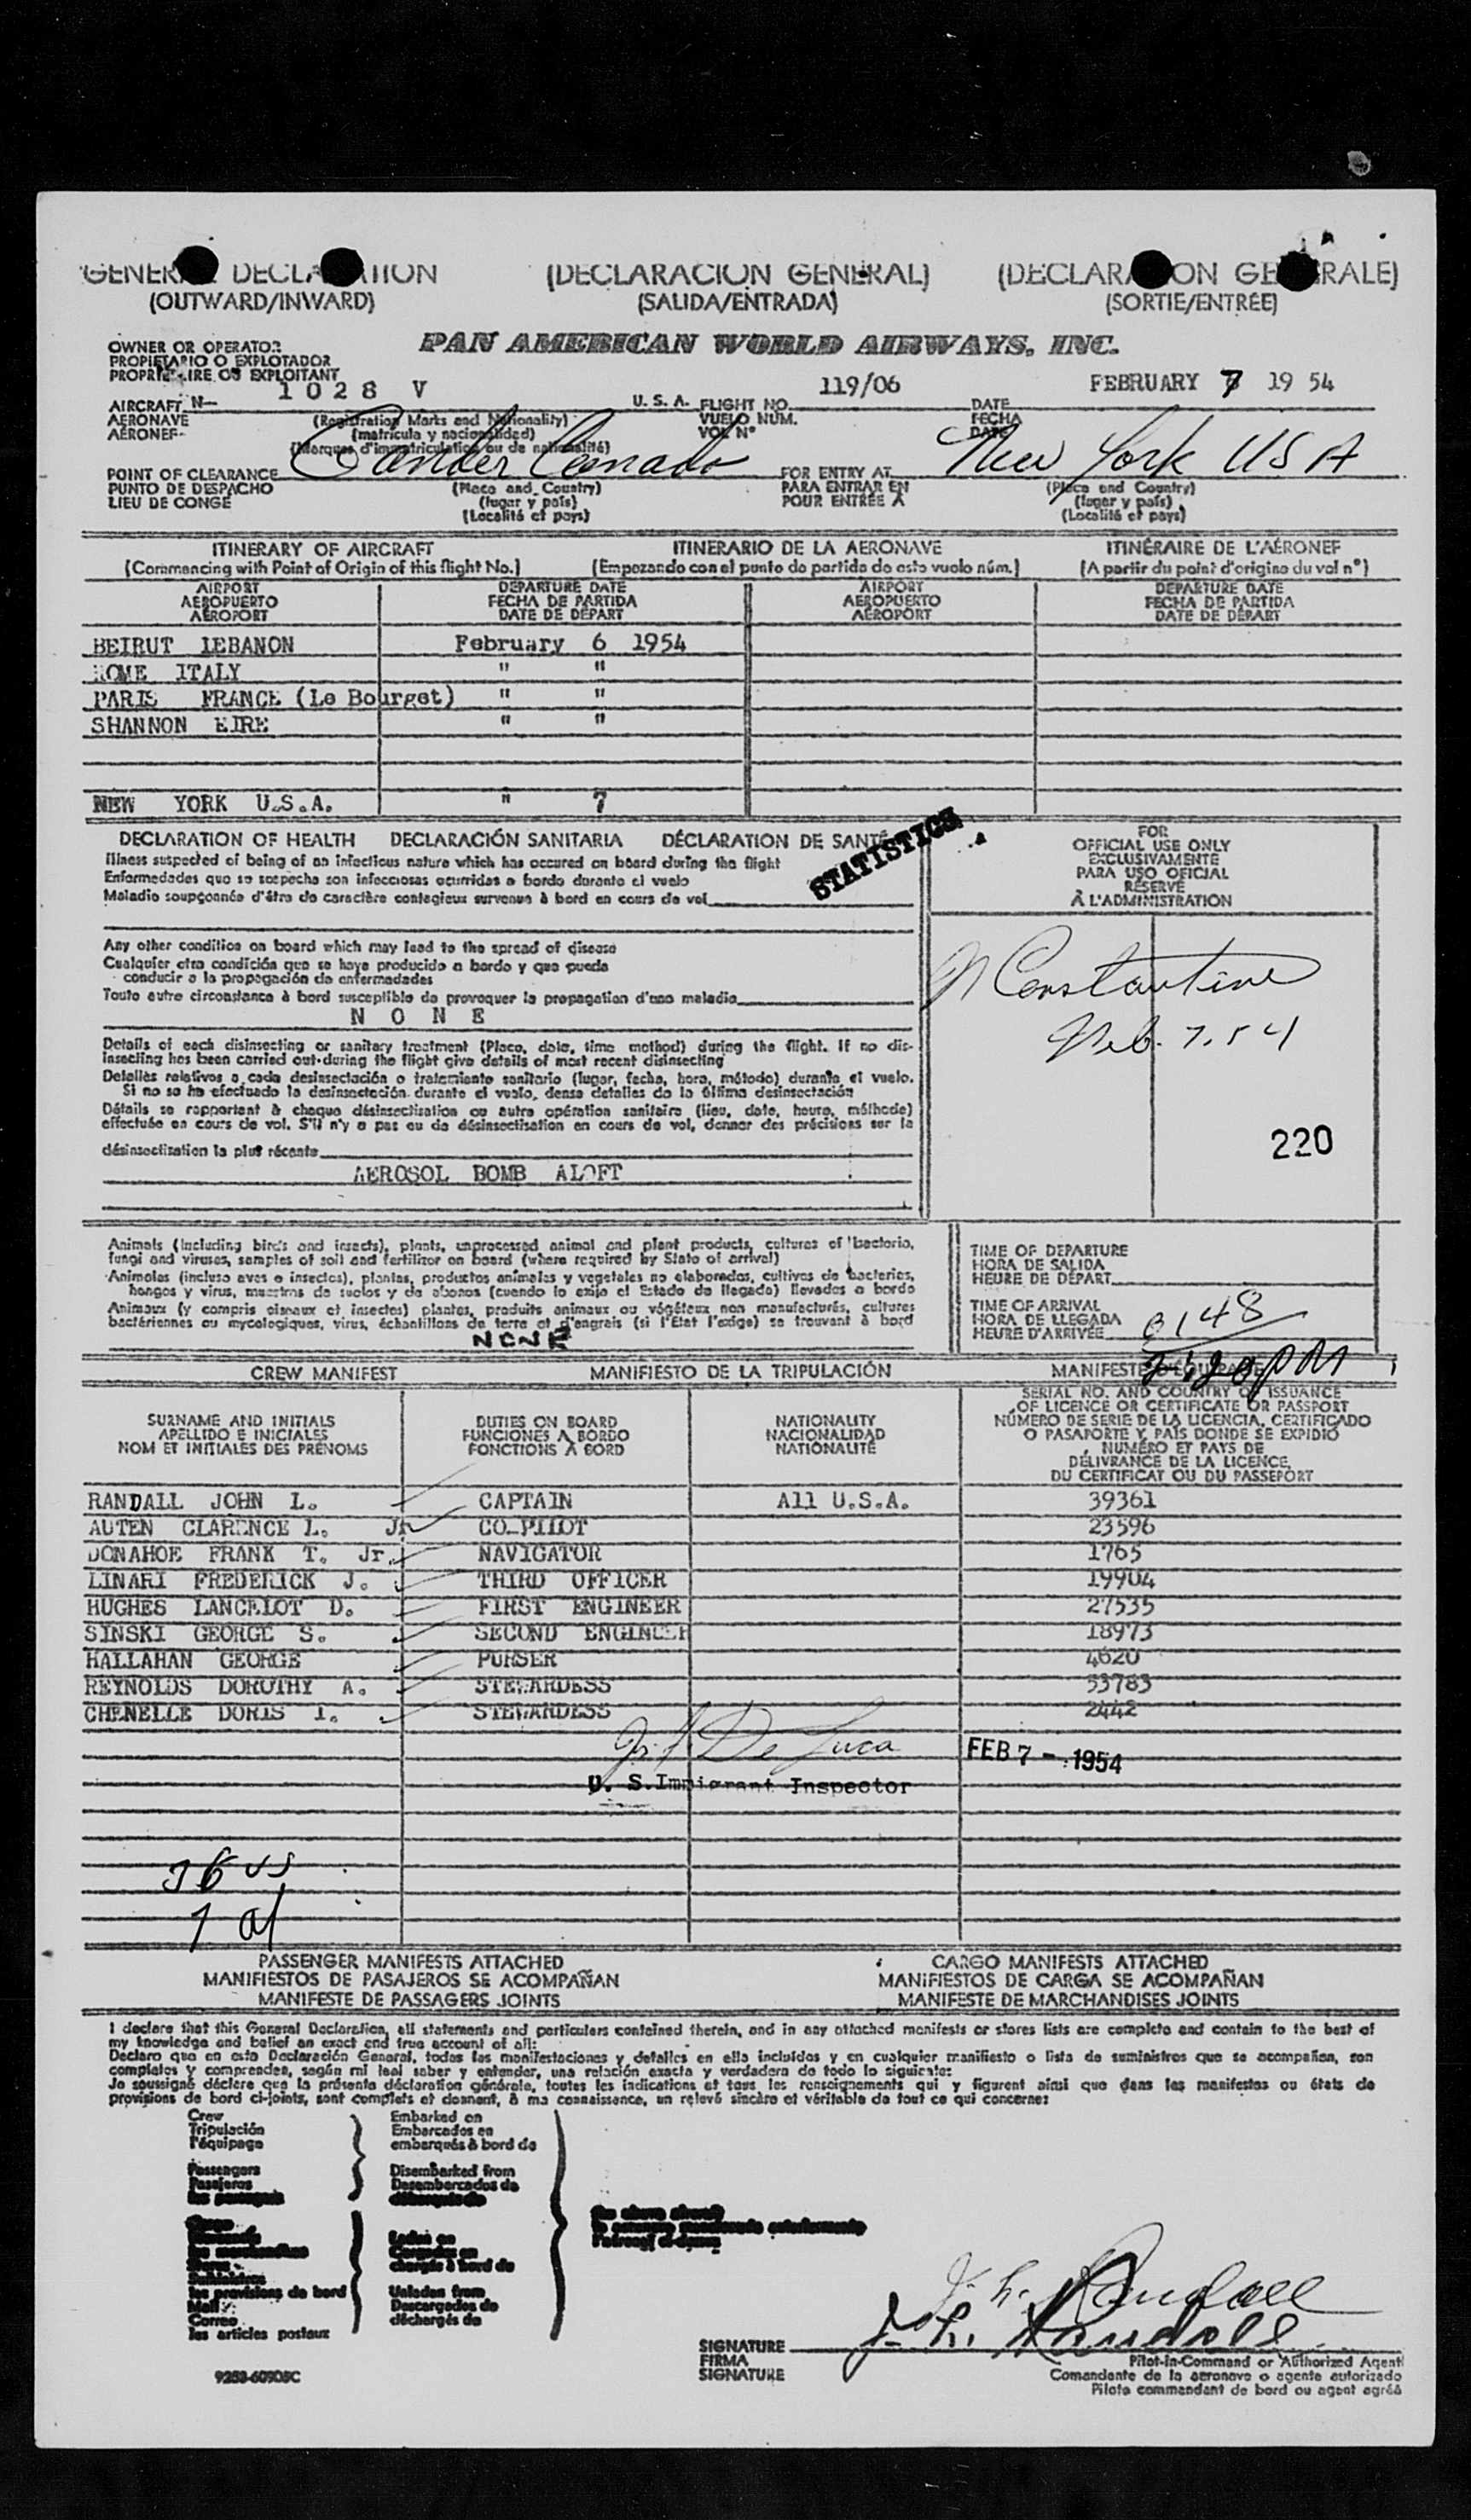 GENERAL DECLARATION (DECLARACION GENERAL) (DECLARATION GENERALE)
(OUTWARD/INWARD) (SALIDA/ENTRADA) (SORTIE/ENTRÉE)
OWNER OR OPERATOR
PROPIETARIO O EXPLOTADOR
PROPRIETAIRE OU EXPLOITANT
PAN AMERICAN WORLD AIRWAYS, INC.
AIRCRAFT N- 1028 V U. S. A. FLIGHT NO. 119/06 DATE FEBRUARY 7 19 54
AERONAVE (Registration Marks and Nationality) VUELO NUM. FECHA
AÉRONEF (matrícula y nacionalidad) VOL Nº DATE
(Marques d'immatriculation ou de nationalité)
POINT OF CLEARANCE Gander Canada FOR ENTRY AT New York USA
PUNTO DE DESPACHO (Place and Country) PARA ENTRAR EN (Place and Country)
LIEU DE CONGÉ (lugar y país) POUR ENTRÉE A (lugar y país)
(Localité et pays) (Localité et pays)
ITINERARY OF AIRCRAFT ITINERARIO DE LA AERONAVE ITINÉRAIRE DE L'AÉRONEF
(Commencing with Point of Origin of this flight No.) (Empezando con el punto de partida de este vuelo núm.) (A partir du point d'origine du vol nº)
AIRPORT DEPARTURE DATE AIRPORT DEPARTURE DATE
AEROPUERTO FECHA DE PARTIDA AEROPUERTO FECHA DE PARTIDA
AÉROPORT DATE DE DÉPART AÉROPORT DATE DE DÉPART
BEIRUT LEBANON February 6 1954
ROME ITALY " "
PARIS FRANCE (Le Bourget) " "
SHANNON EIRE " "
NEW YORK U.S.A. " 7
DECLARATION OF HEALTH DECLARACIÓN SANITARIA DÉCLARATION DE SANTÉ
STATISTICS
Illness suspected of being of an infectious nature which has occured on board during the flight
Enfermedades que se sospecha son infecciosas ocurridas a bordo durante el vuelo
Maladie soupçonnée d'être de caractère contagieux survenue à bord en cours de vol
Any other condition on board which may lead to the spread of disease
Cualquier otra condición que se haya producido a bordo y que pueda
conducir a la propagación de enfermedades
Toute autre circonstance à bord susceptible de provoquer la propagation d'une maladie
N O N E
Details of each disinsecting or sanitary treatment (Place, date, time method) during the flight. If no dis-
insecting has been carried out during the flight give details of most recent disinsecting
Detalles relativos a cada desinsectación o tratamiento sanitario (lugar, fecha, hora, método) durante el vuelo.
Si no se ha efectuado la desinsectación durante el vuelo, dense detalles de la última desinsectación
Détails se rapportant à chaque désinsectisation ou autre opération sanitaire (lieu, date, heure, méthode)
effectuée en cours de vol. S'il n'y a pas eu de désinsectisation en cours de vol, donner des précisions sur la
désinsectization la plus récente
AEROSOL BOMB ALOFT
FOR
OFFICIAL USE ONLY
EXCLUSIVAMENTE
PARA USO OFICIAL
RÉSERVÉ
À L'ADMINISTRATION
N Constantine
Feb. 7. 54
220
Animals (including birds and insects), plants, unprocessed animal and plant products, cultures of bacteria,
fungi and viruses, samples of soil and fertilizer on board (where required by State of arrival)
Animales (incluso aves e insectos), plantas, productos animales y vegetales no elaborados, cultivos de bacterias,
hongos y virus, muestras de suelos y de abonos (cuando lo exija el Estado de llegada) llevados a bordo
Animaux (y compris oiseaux et insectes) plantes, produits animaux ou végétaux non manufacturés, cultures
bactériennes ou mycologiques, virus, échantillons de terre et d'engrais (si l'État l'exige) se trouvant à bord
NONE
TIME OF DEPARTURE
HORA DE SALIDA
HEURE DE DÉPART
TIME OF ARRIVAL
HORA DE LLEGADA
HEURE D'ARRIVÉE 0148
CREW MANIFEST MANIFIESTO DE LA TRIPULACIÓN MANIFESTE
SURNAME AND INITIALS
APELLIDO E INICIALES
NOM ET INITIALES DES PRÉNOMS
DUTIES ON BOARD
FUNCIONES A BORDO
FONCTIONS À BORD
NATIONALITY
NACIONALIDAD
NATIONALITÉ
SERIAL NO. AND COUNTRY OF ISSUANCE
OF LICENCE OR CERTIFICATE OR PASSPORT
NÚMERO DE SERIE DE LA LICENCIA, CERTIFICADO
O PASAPORTE Y PAÍS DONDE SE EXPIDIÓ
NUMÉRO ET PAYS DE
DÉLIVRANCE DE LA LICENCE
DU CERTIFICAT OU DU PASSEPORT
RANDALL JOHN L. CAPTAIN All U.S.A. 39361
AUTEN CLARENCE L. Jr CO-PILOT 23596
DONAHOE FRANK T. Jr. NAVIGATOR 1765
LINARI FREDERICK J. THIRD OFFICER 19904
HUGHES LANCELOT D. FIRST ENGINEER 27535
SINSKI GEORGE S. SECOND ENGINEER 18973
HALLAHAN GEORGE PURSER 4620
REYNOLDS DOROTHY A. STEWARDESS 53783
CHENELLE DORIS I. STEWARDESS 2442
De Luca FEB 7 - 1954
U. S. Immigrant Inspector
36 US
1 al
PASSENGER MANIFESTS ATTACHED CARGO MANIFESTS ATTACHED
MANIFIESTOS DE PASAJEROS SE ACOMPAÑAN MANIFIESTOS DE CARGA SE ACOMPAÑAN
MANIFESTE DE PASSAGERS JOINTS MANIFESTE DE MARCHANDISES JOINTS
I declare that this General Declaration, all statements and particulars contained therein, and in any attached manifests or stores lists are complete and contain to the best of
my knowledge and belief an exact and true account of all:
Declaro que en esta Declaración General, todas las manifestaciones y detalles en ella incluidos y en cualquier manifiesto o lista de suministros que se acompañan, son
completos y comprenden, según mi leal saber y entender, una relación exacta y verdadera de todo lo siguiente:
Je soussigné déclare que la présente déclaration générale, toutes les indications et tous les renseignements qui y figurent ainsi que dans les manifestes ou états de
provisions de bord ci-joints, sont complets et donnent, à ma connaissance, un relevé sincère et véritable de tout ce qui concerne:
Crew Embarked on
Tripulación Embarcados en
l'équipage embarqués à bord de
Passengers Disembarked from
Pasajeros Desembarcados de
les provisions de bord
Mail
Correo
les articles postaux
chargés à bord de
Unladen from
Descargados de
déchargés de
J. L. Randall
J. L. Randall
SIGNATURE
FIRMA
SIGNATURE
Pilot-in-Command or Authorized Agent
Comandante de la aeronave o agente autorizado
Pilote commandant de bord ou agent agréé
9253-60905C